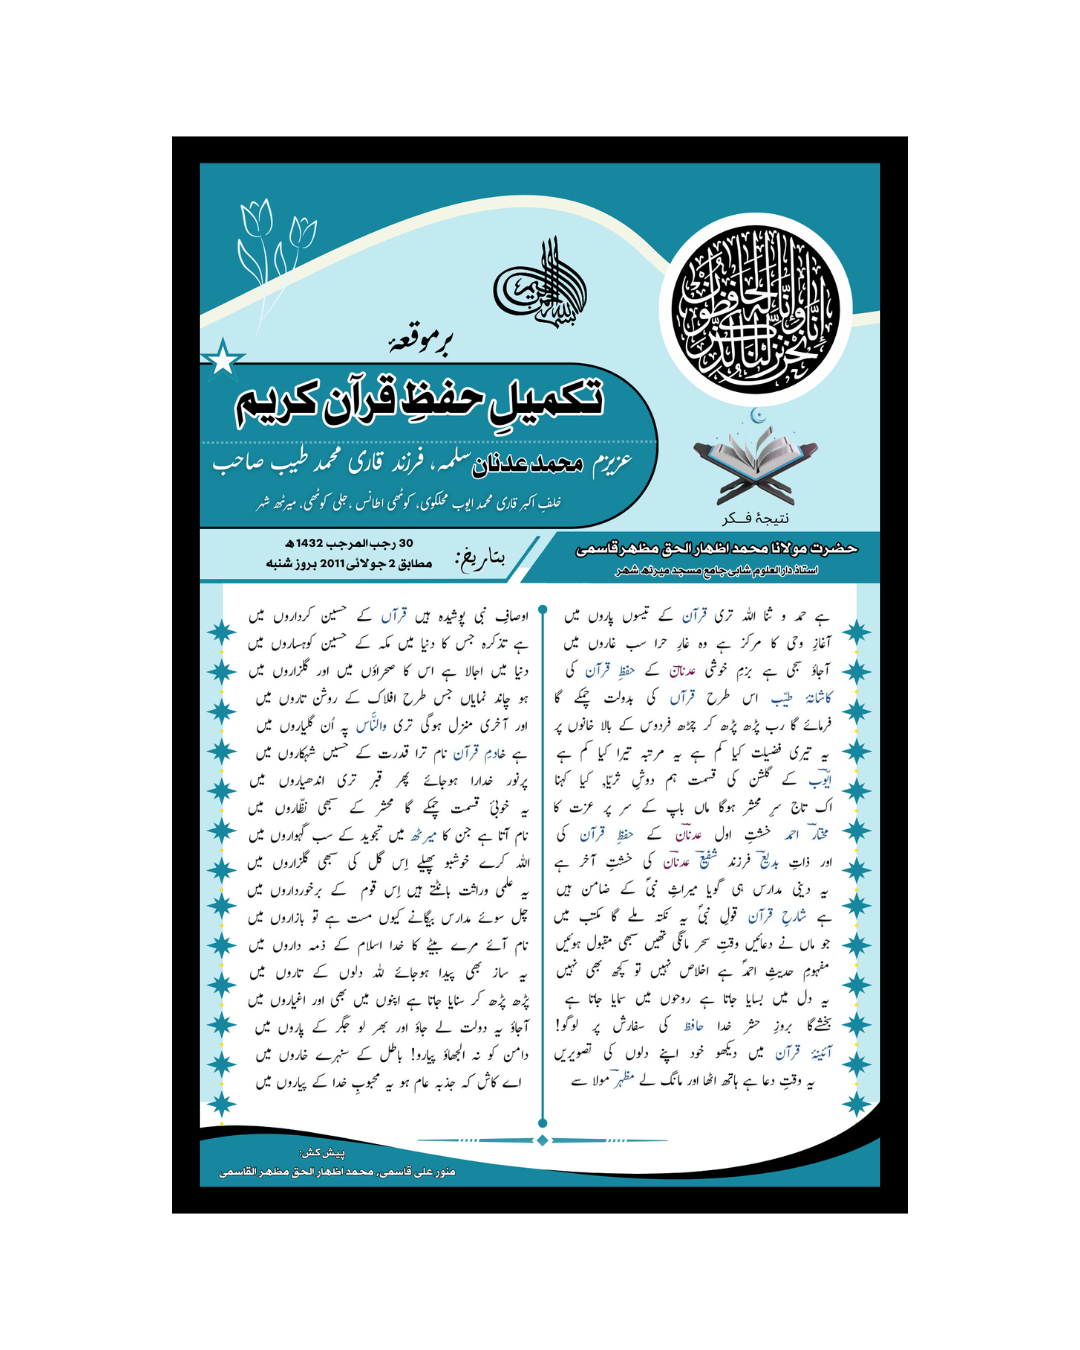 بسم الله الرحمن الرحیم
إنا نحن نزلنا الذكر وإنا له لحافظون
بر موقعۂ
تکمیلِ حفظِ قرآن کریم
عزیزم محمد عدنان سلمہ، فرزند قاری محمد طیب صاحب
خلفِ اکبر قاری محمد ایوب محلکوی، کوٹھی اطانس، جلی کوٹھی، میرٹھ شہر
نتیجۂ فکر
حضرت مولانا محمد اظہار الحق مظہر قاسمی
استاذ دارالعلوم شاہی جامع مسجد میرٹھ شہر
بتاریخ:
30 رجب المرجب 1432ھ
مطابق 2 جولائی 2011 بروز شنبہ
ہے حمد و ثنا اللہ تری قرآن کے تیسوں پاروں میں
اوصافِ نبی پوشیدہ ہیں قرآں کے حسین کرداروں میں
آغازِ وحی کا مرکز ہے وہ غارِ حرا سب غاروں میں
ہے تذکرہ جس کا دنیا میں مکہ کے حسین کوہساروں میں
آجاؤ سجی ہے بزمِ خوشی عدنان کے حفظِ قرآن کی
دنیا میں اجالا ہے اس کا صحراؤں میں اور گلزاروں میں
کاشانۂ طیّب اس طرح قرآں کی بدولت چمکے گا
ہو چاند نمایاں جس طرح افلاک کے روشن تاروں میں
فرمائے گا رب پڑھ پڑھ کر چڑھ فردوس کے بالا خانوں پر
اور آخری منزل ہوگی تری والنَّاس پہ اُن گلیاروں میں
یہ تیری فضیلت کیا کم ہے یہ مرتبہ تیرا کیا کم ہے
ہے خادمِ قرآن نام ترا قدرت کے حسیں شہکاروں میں
ایوب کے گلشن کی قسمت ہم دوشِ ثریّا، کیا کہنا
پرنور خدارا ہوجائے پھر قبر تری اندھیاروں میں
اک تاج سرِ محشر ہوگا ماں باپ کے سر پر عزت کا
یہ خوبیٔ قسمت چمکے گا محشر کے سبھی نظّاروں میں
مختار احمد خشتِ اول عدنان کے حفظِ قرآن کی
نام آتا ہے جن کا میرٹھ میں تجوید کے سب گہواروں میں
اور ذاتِ بدیع فرزند شفیع عدنان کی خشتِ آخر ہے
اللہ کرے خوشبو پھیلے اِس گل کی سبھی گلزاروں میں
یہ دینی مدارس ہی گویا میراثِ نبیؐ کے ضامن ہیں
یہ علمی وراثت بانٹتے ہیں اِس قوم کے برخورداروں میں
ہے شارحِ قرآن قولِ نبیؐ یہ نکتہ ملے گا مکتب میں
چل سوئے مدارس بیگانے کیوں مست ہے تو بازاروں میں
جو ماں نے دعائیں وقتِ سحر مانگی تھیں سبھی مقبول ہوئیں
نام آئے مرے بیٹے کا خدا اسلام کے ذمہ داروں میں
مفہومِ حدیثِ احمدؐ ہے اخلاص نہیں تو کچھ بھی نہیں
یہ ساز بھی پیدا ہوجائے للہ دلوں کے تاروں میں
یہ دل میں بسایا جاتا ہے روحوں میں سمایا جاتا ہے
پڑھ پڑھ کر سنایا جاتا ہے اپنوں میں بھی اور اغیاروں میں
بخشےگا بروزِ حشر خدا حافظ کی سفارش پر لوگو!
آجاؤ یہ دولت لے جاؤ اور بھر لو جگر کے پاروں میں
آئینۂ قرآن میں دیکھو خود اپنے دلوں کی تصویریں
دامن کو نہ الجھاؤ پیارو! باطل کے سنہرے خاروں میں
یہ وقتِ دعا ہے ہاتھ اٹھا اور مانگ لے مظہر مولا سے
اے کاش کہ جذبہ عام ہو یہ محبوبِ خدا کے پیاروں میں
پیش کش:
منور علی قاسمی، محمد اظہار الحق مظہر القاسمی